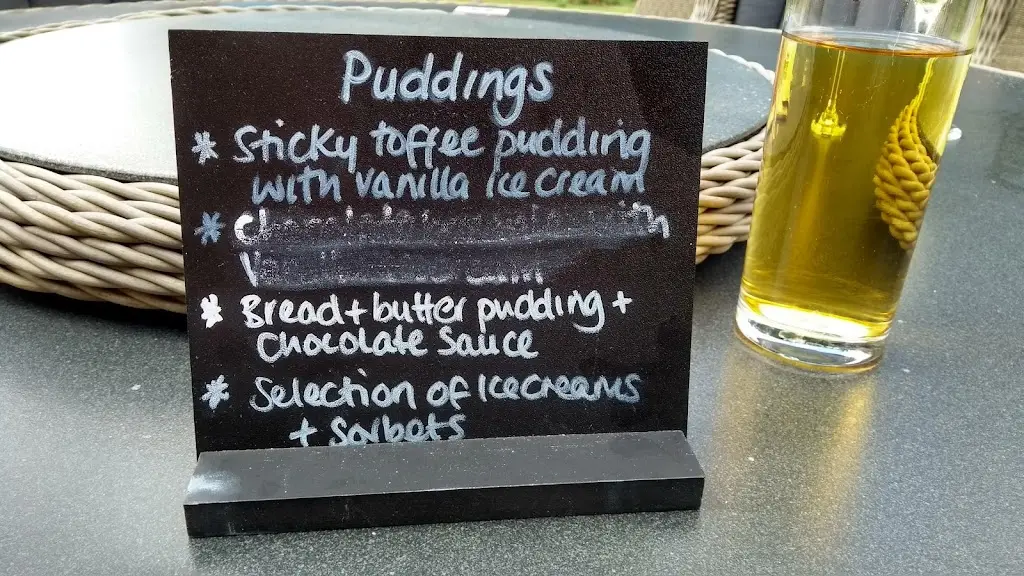 Puddings
* Sticky toffee pudding
with vanilla ice cream
* chocolate with
* Bread + butter pudding +
chocolate sauce
* Selection of Icecreams
+ Sorbets